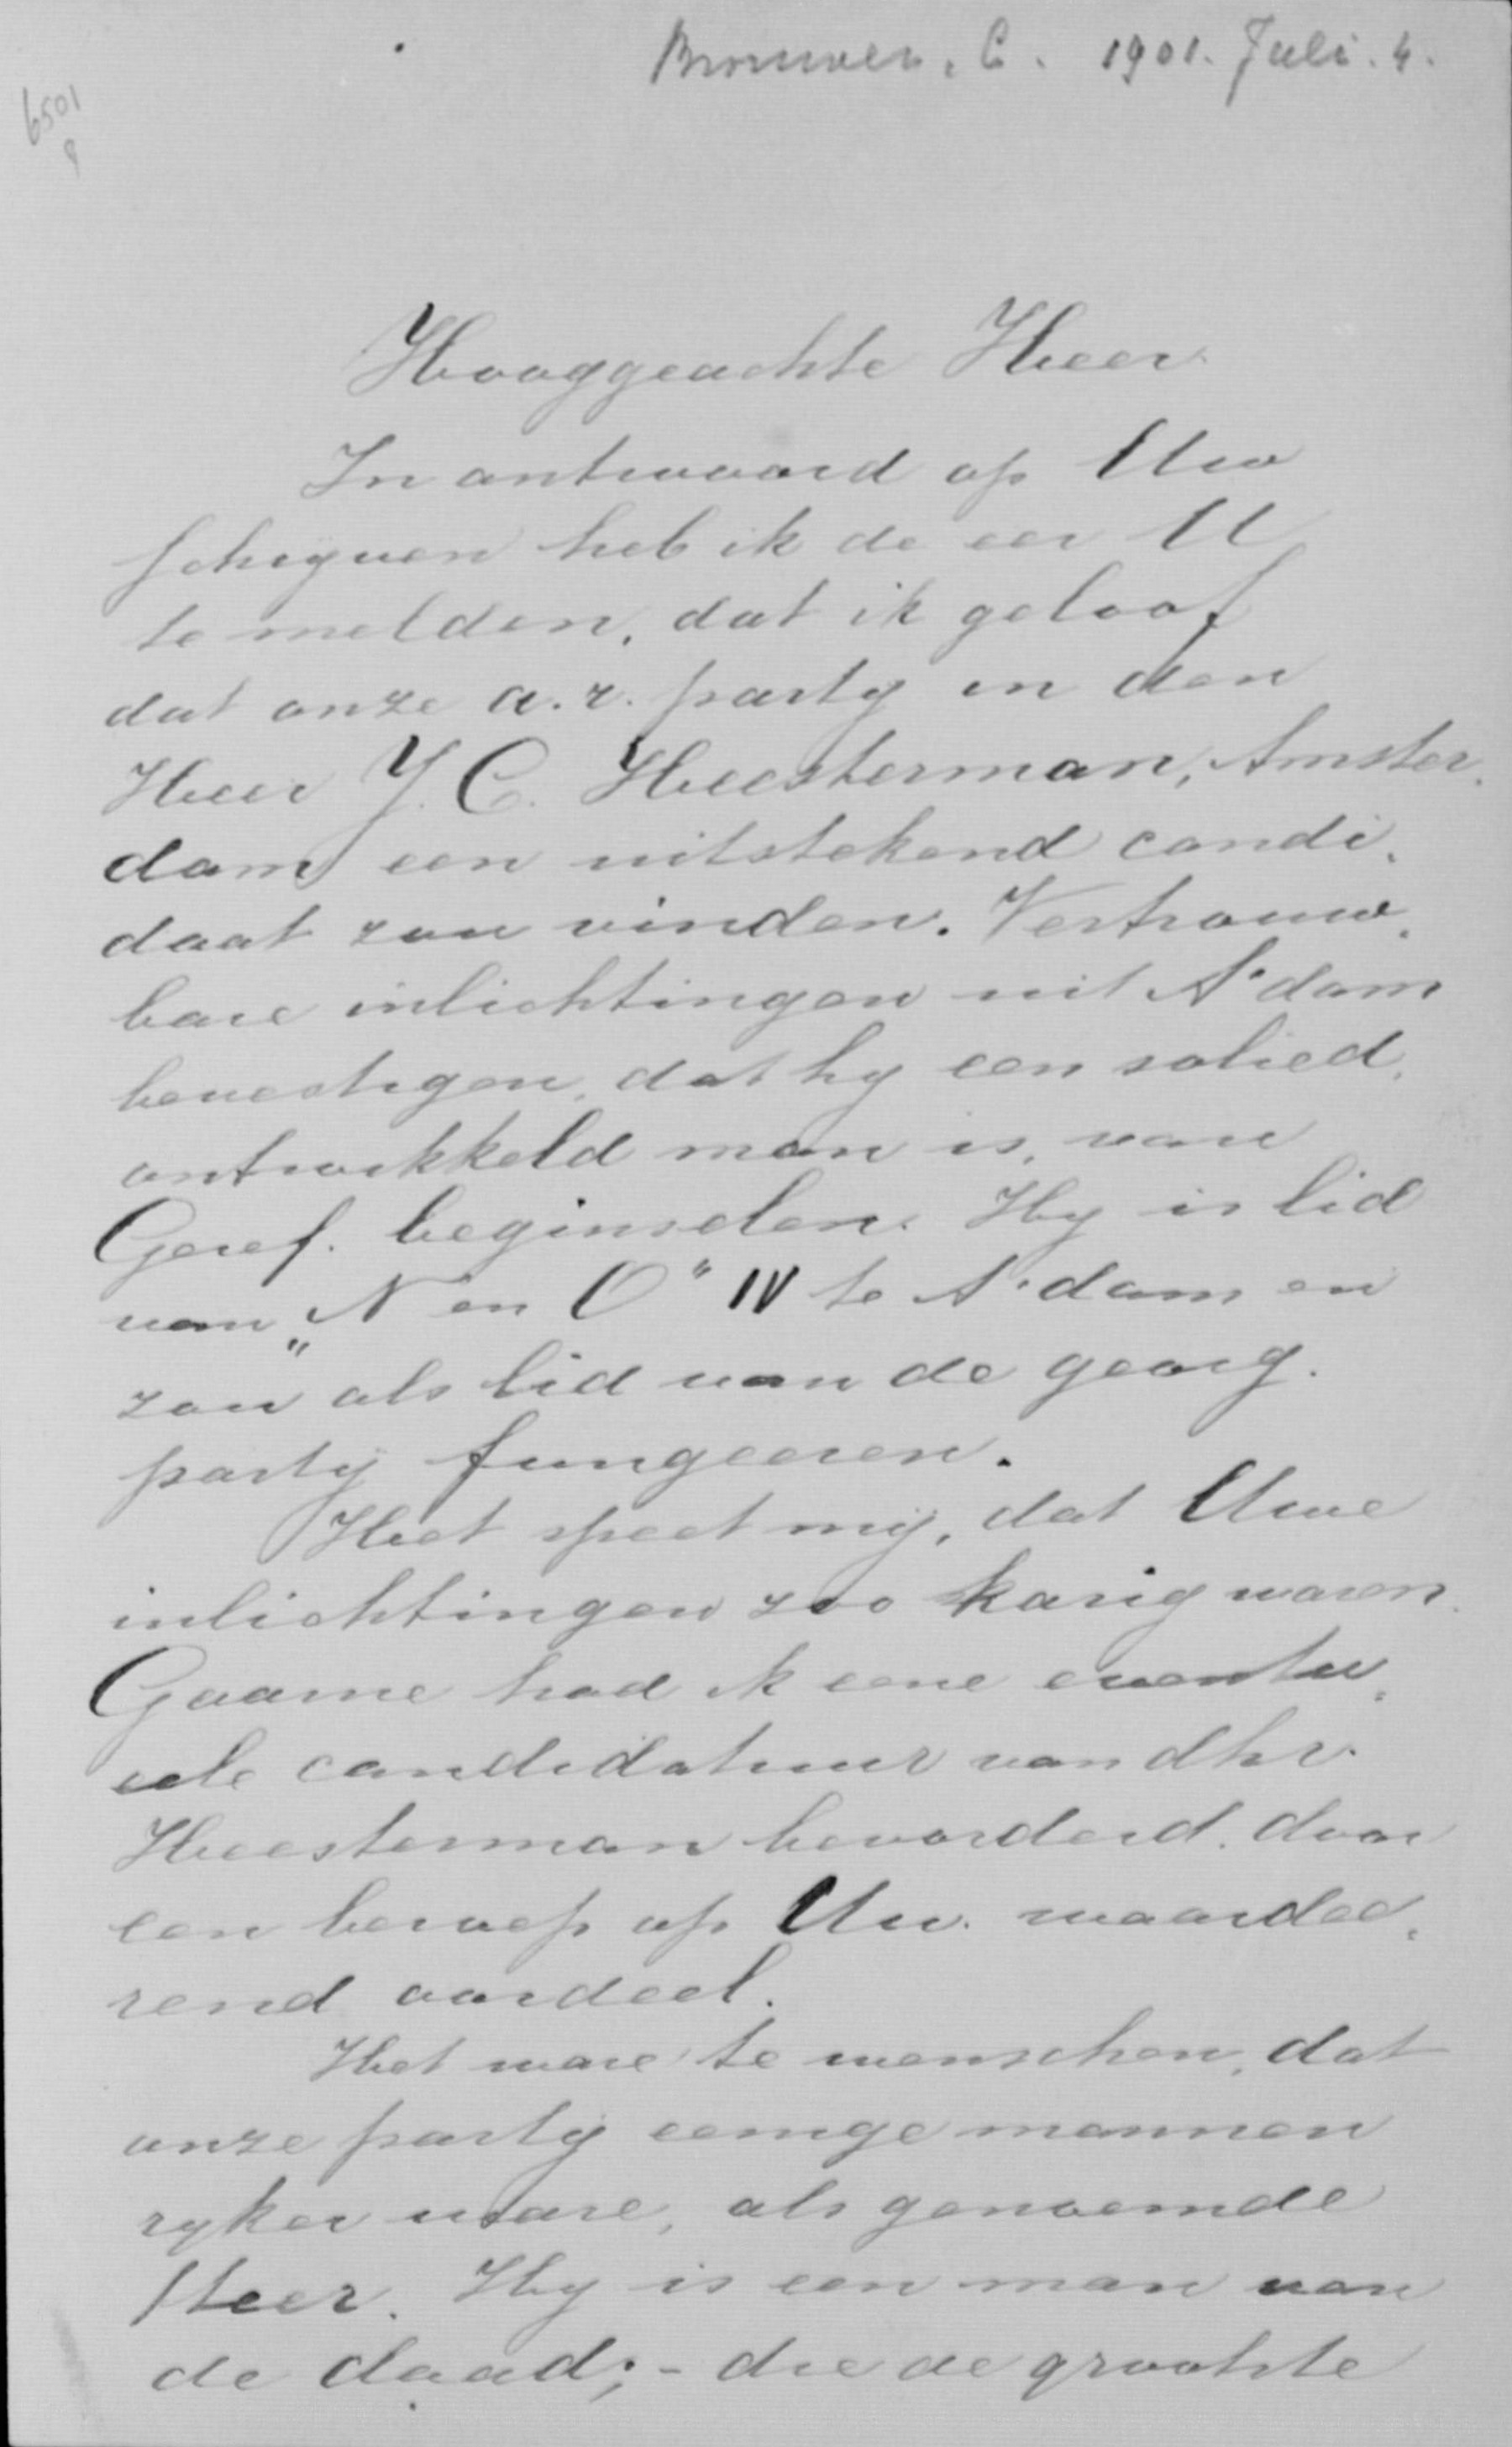 Brouwer, C. 1901. Juli. 4.
6501
8
Hooggeachte Heer
In antwoord op Uw
schrijven heb ik de eer U
te melden, dat ik geloof
dat onze a.r. party in den
Heer J. C. Heesterman, Amster-
dam een uitstekend candi-
daat zou vinden. Vertrouw-
bare inlichtingen uit A'dam
bevestigen, dat hy een solied,
ontwikkeld man is, van
Geref. beginselen. Hy is lid
van „N en O" IV te A'dam en
zou als lid van de georg.
party fungeeren.
Het speet mij, dat Uwe
inlichtingen zoo karig waren.
Gaarne had ik eene eventu-
eele candidatuur van dhr.
Heesterman bevorderd door
een beroep op Uw waardee-
rend oordeel.
Het ware te wenschen, dat
onze party eenige mannen
ryker ware, als genoemde
Heer. Hy is een man van
de daad; - die de grootste